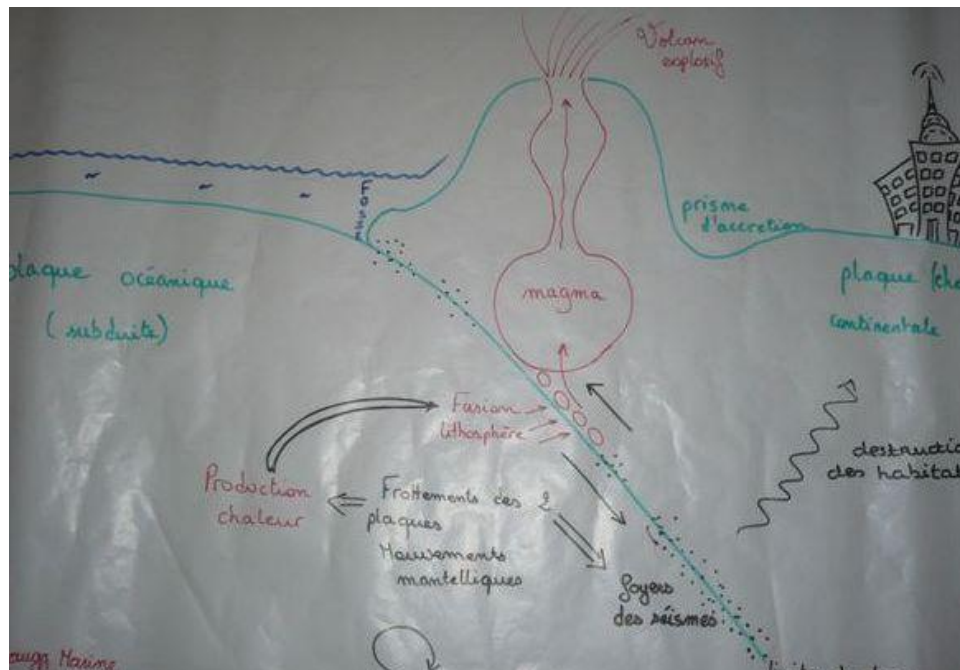 Volcan
explosif
Fosse
prisme
d'accretion
plaque océanique
(subduite)
magma
plaque
continentale
Fusion
lithosphère
destructio
des habitat
Production
chaleur
Frottements des 2
plaques
Mouvements
mantelliques
foyers
des séismes
Marine